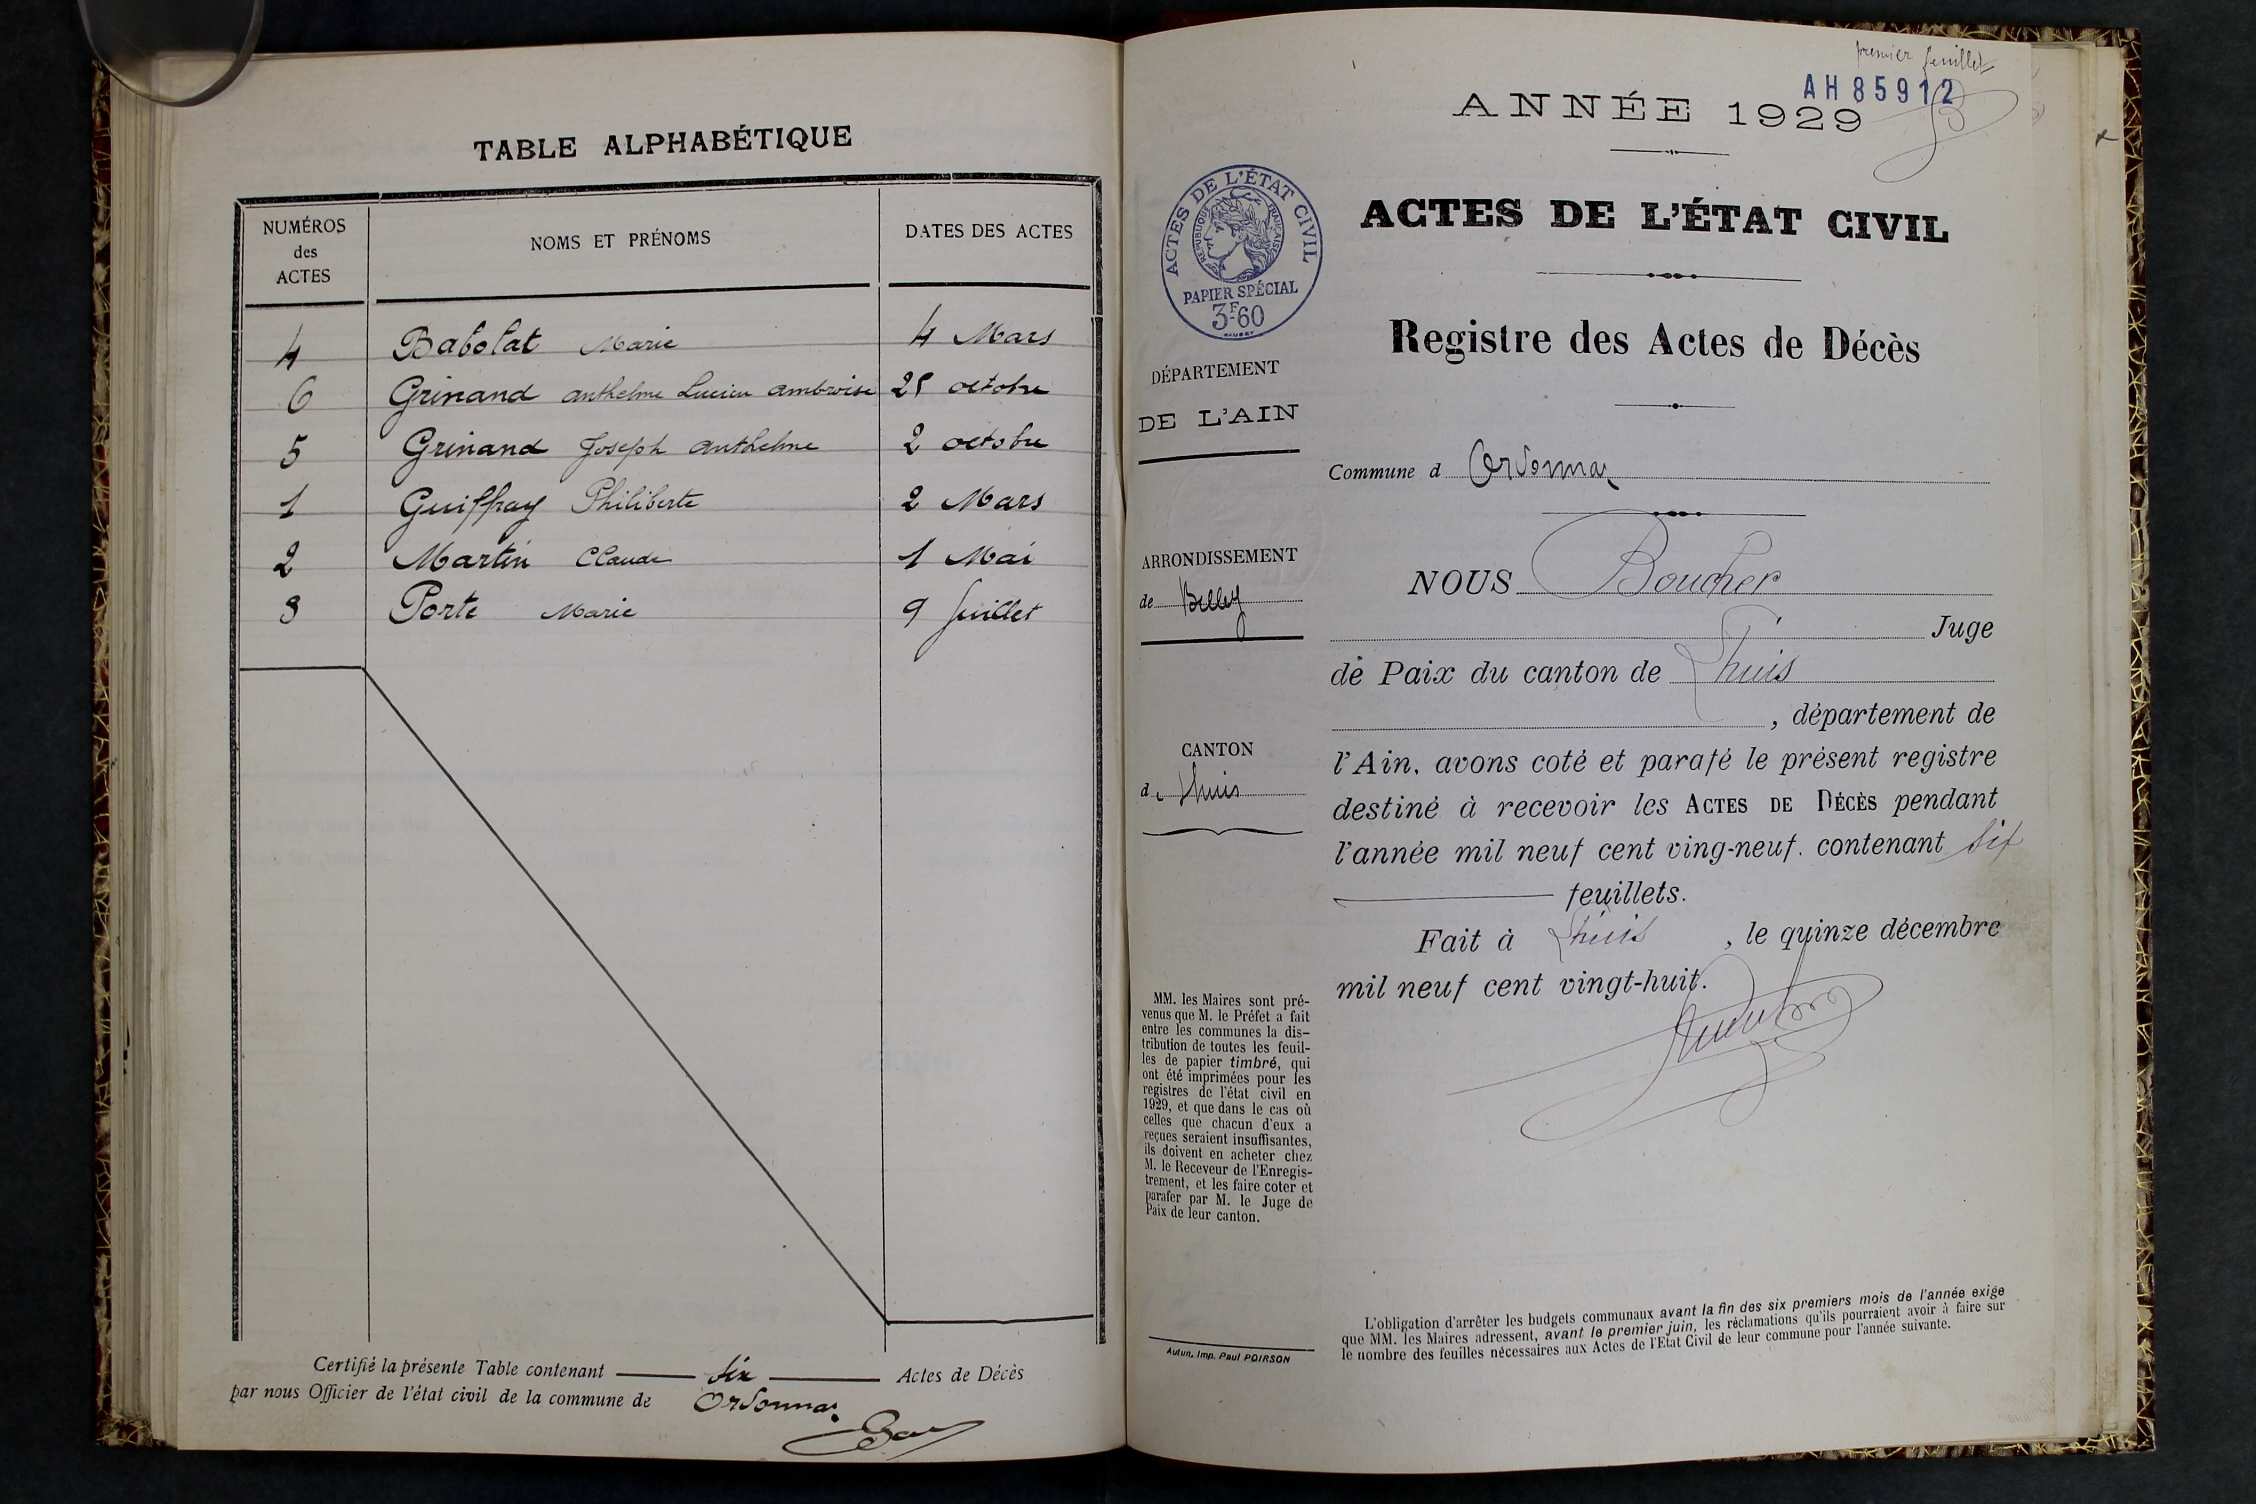 TABLE ALPHABÉTIQUE
NUMÉROS des ACTES
NOMS ET PRÉNOMS
DATES DES ACTES
4 Babolat Marie 4 Mars
6 Grinand Anthelme Lucien Ambroise 25 octobre
5 Grinand Joseph Anthelme 2 octobre
1 Guiffray Philiberte 2 Mars
2 Martin Claude 1 Mai
3 Porte Marie 9 Juillet
Certifié la présente Table contenant six Actes de Décès
par nous Officier de l'état civil de la commune de Ordonnaz
premier feuillet
AH 85912
ANNÉE 1929
ACTES DE L'ÉTAT CIVIL
RÉPUBLIQUE FRANÇAISE
PAPIER SPÉCIAL
3F60
ACTES DE L'ÉTAT CIVIL
Registre des Actes de Décès
DÉPARTEMENT
DE L'AIN
Commune d Ordonnaz
ARRONDISSEMENT
de Belley
CANTON
d Lhuis
NOUS Boucher
Juge
de Paix du canton de Lhuis
, département de
l'Ain, avons coté et parafé le présent registre
destiné à recevoir les ACTES DE DÉCÈS pendant
l'année mil neuf cent ving-neuf. contenant six
feuillets.
Fait à Lhuis, le quinze décembre
mil neuf cent vingt-huit.
MM. les Maires sont pré-
venus que M. le Préfet a fait
entre les communes la dis-
tribution de toutes les feuil-
les de papier timbré, qui
ont été imprimées pour les
registres de l'état civil en
1929, et que dans le cas où
celles que chacun d'eux a
reçues seraient insuffisantes,
ils doivent en acheter chez
M. le Receveur de l'Enregis-
trement, et les faire coter et
parafer par M. le Juge de
Paix de leur canton.
Autun, Imp. Paul POIRSON
L'obligation d'arrêter les budgets communaux avant la fin des six premiers mois de l'année exige
que MM. les Maires adressent, avant le premier juin, les réclamations qu'ils pourraient avoir à faire sur
le nombre des feuilles nécessaires aux Actes de l'Etat Civil de leur commune pour l'année suivante.